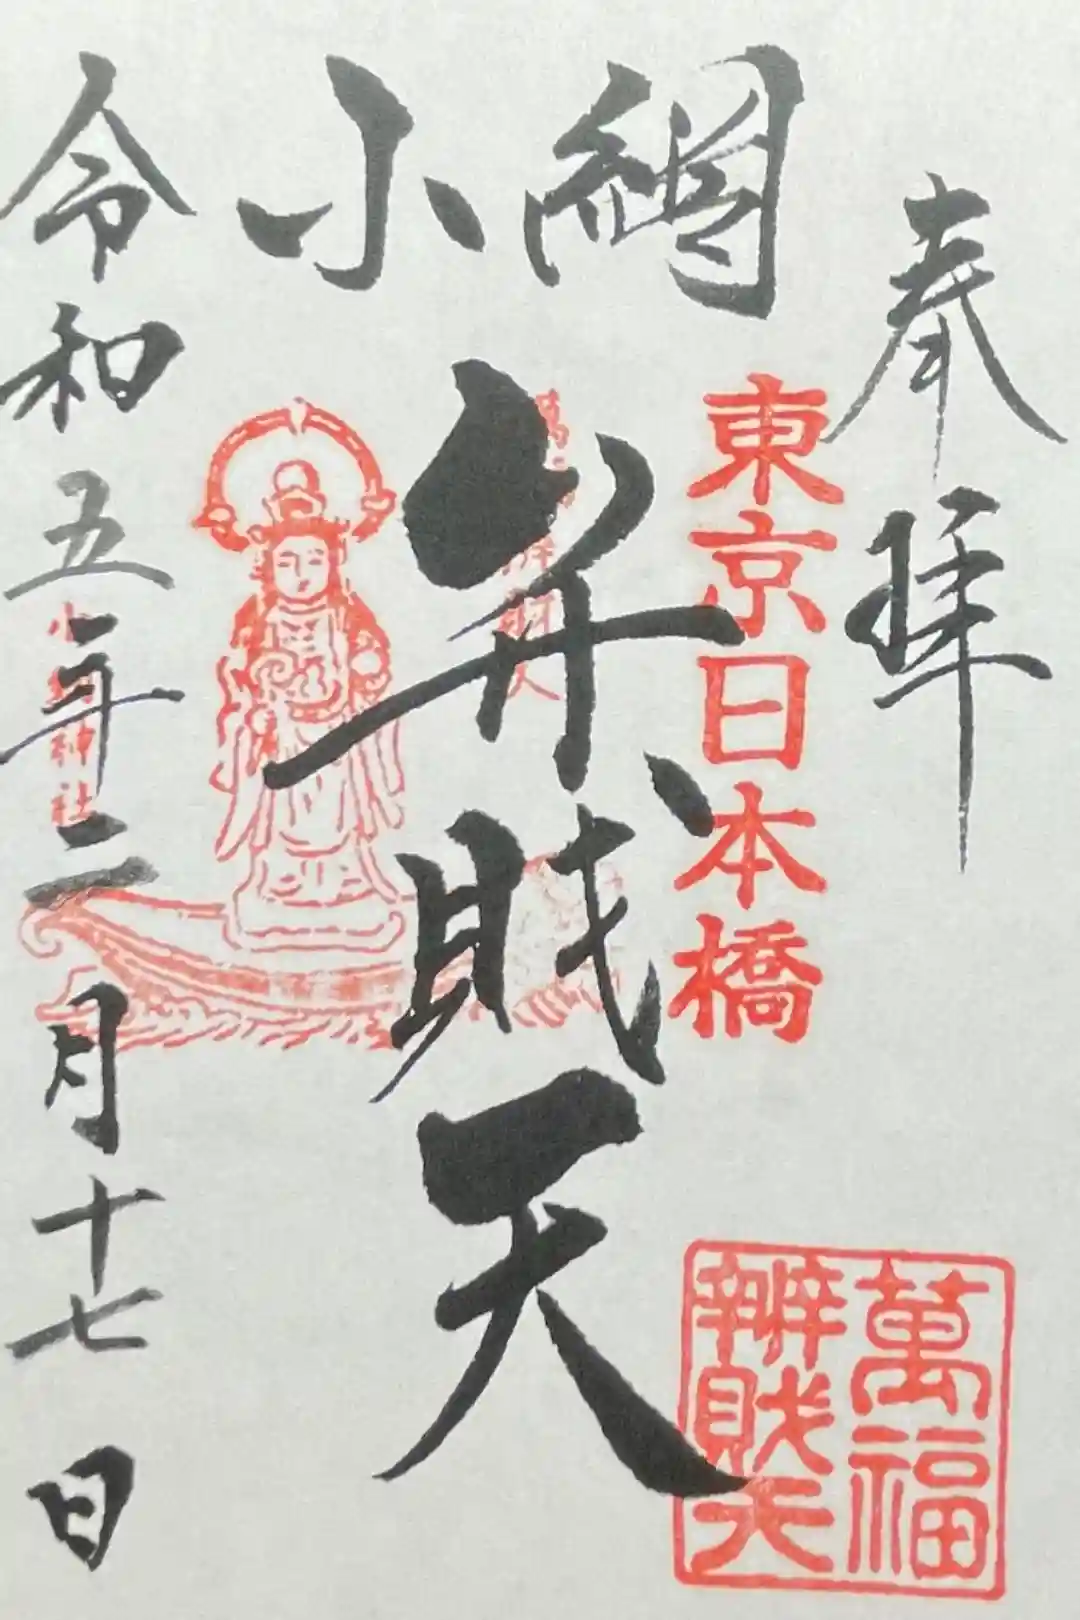 奉拝
東京日本橋
小網
弁財天
萬福
辨財天
小網神社
令和五年二月十七日